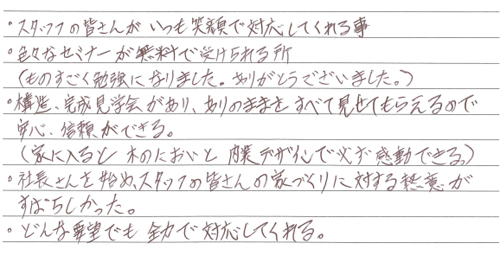 ・スタッフの皆さんがいつも笑顔で対応してくれる事
・色々なセミナーが無料で受けられる所
(ものすごく勉強になりました。ありがとうございました。)
・構造、完成見学会があり、ありのままをすべて見せてもらえるので
安心、信頼ができる。
(家に入ると木のにおいと内装デザインで必ず感動できる。)
・社長さんを始め、スタッフの皆さんの家づくりに対する熱意が
すばらしかった。
・どんな要望でも全力で対応してくれる。